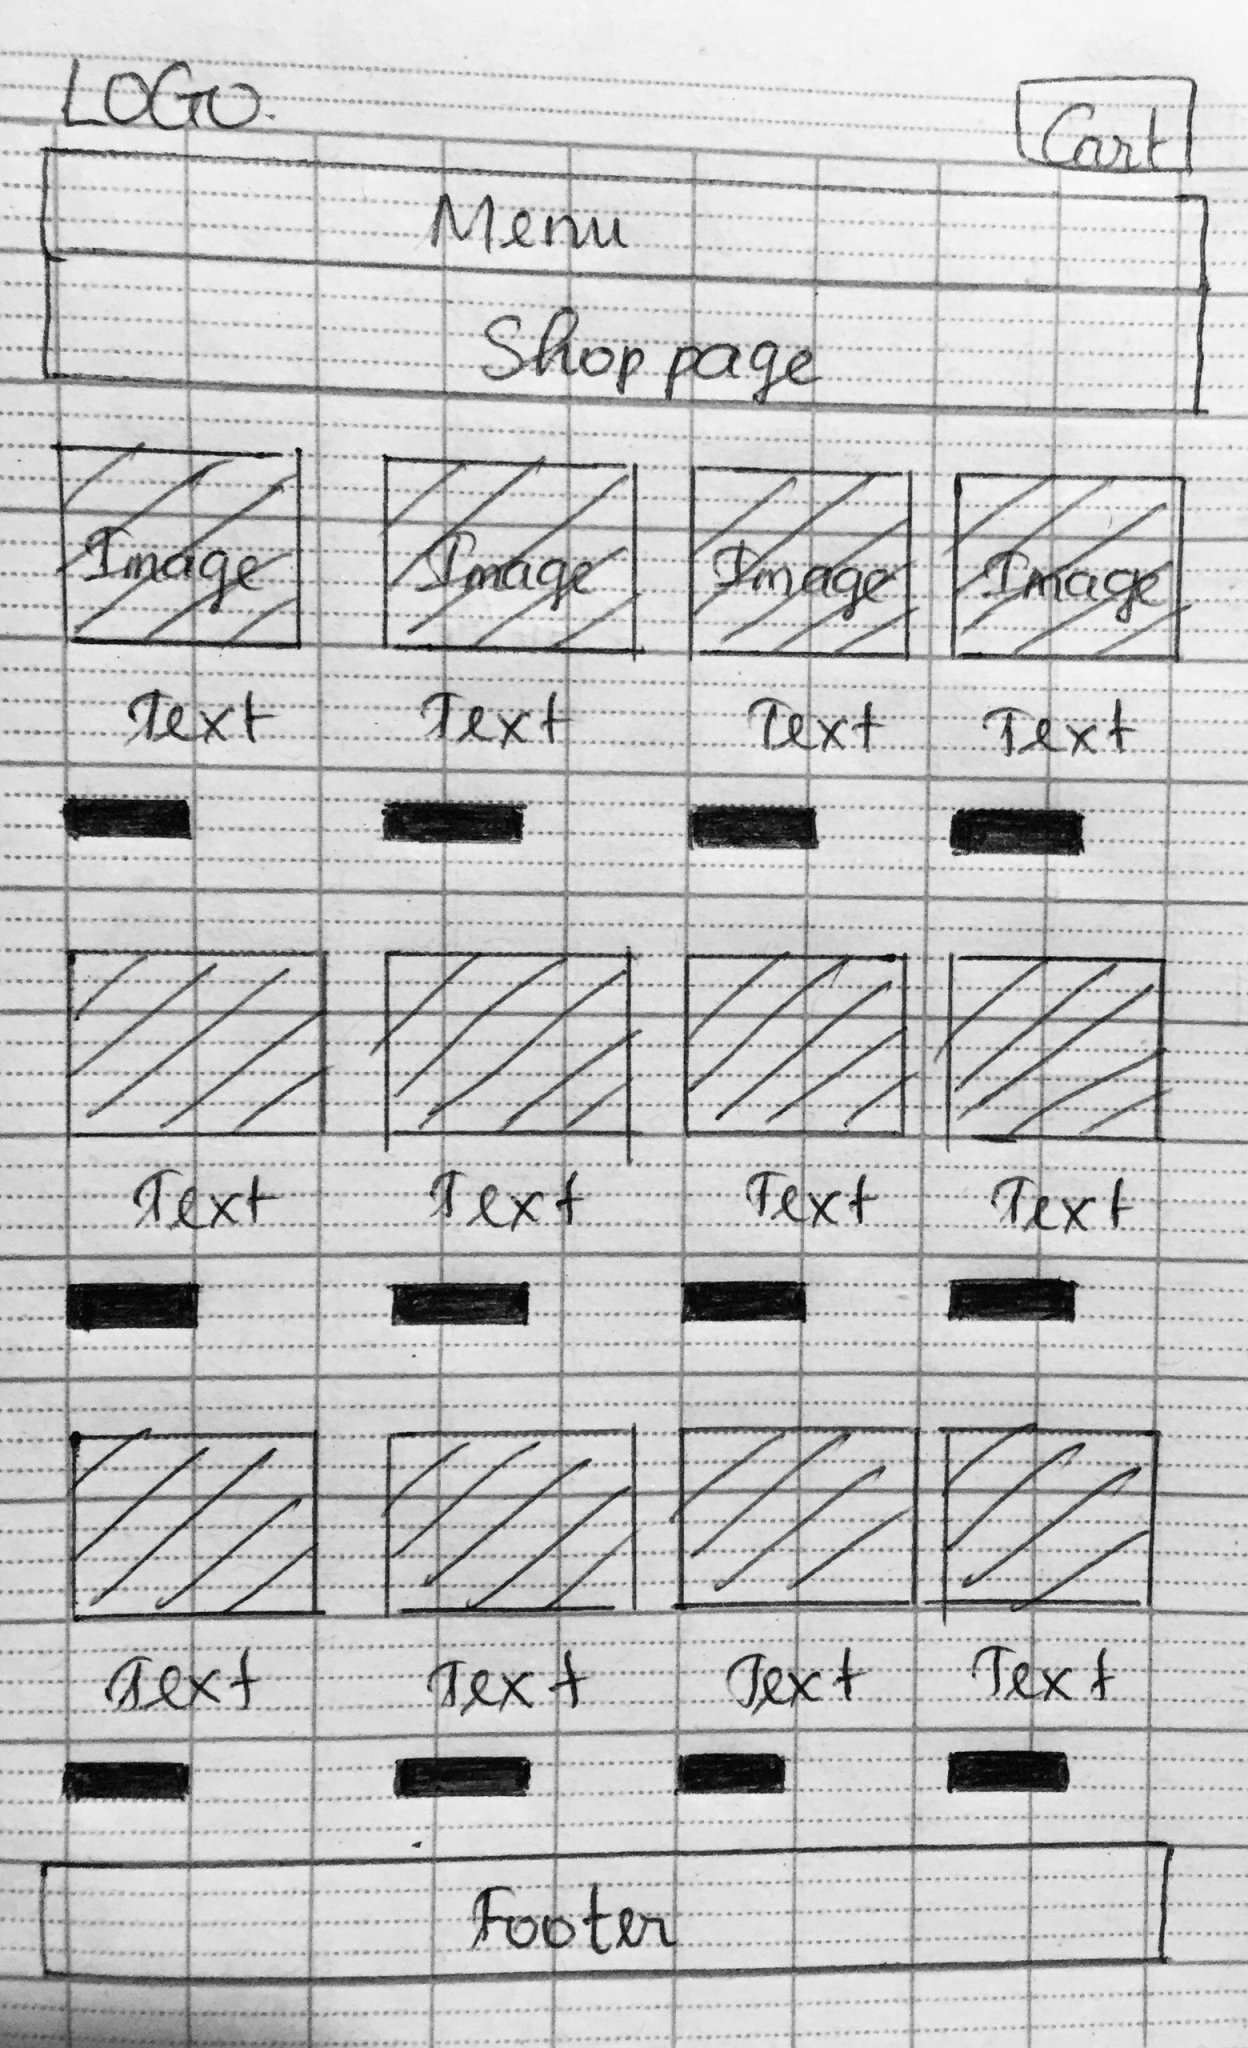 LOGO.
Cart
Menu
Shop page
Image Image Image Image
Text Text Text Text
Text Text Text Text
Text Text Text Text
Footer